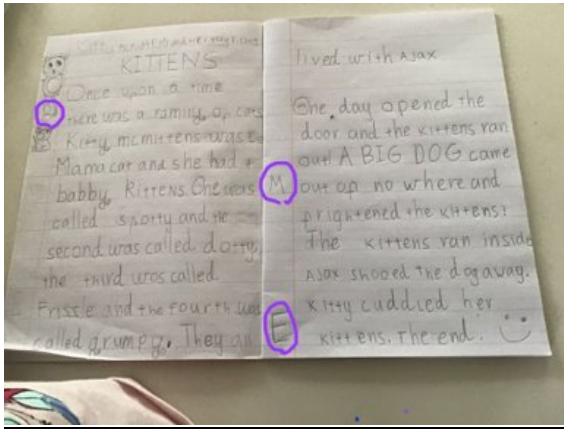 KITTENS
Once upon a time
there was a family of cats
Kitty mcmittens was a
Mama cat and she had 4
babby kittens. One was
called spotty and the
second was called dotty,
the third was called
Frissle and the fourth was
called grumpy. They all
lived with AJax
One day opened the
door and the kittens ran
out! A BIG DOG came
M
out of no where and
frightened the kittens!
The kittens ran inside
AJax shooed the dog away.
Kitty cuddled her
E
kittens. The end.